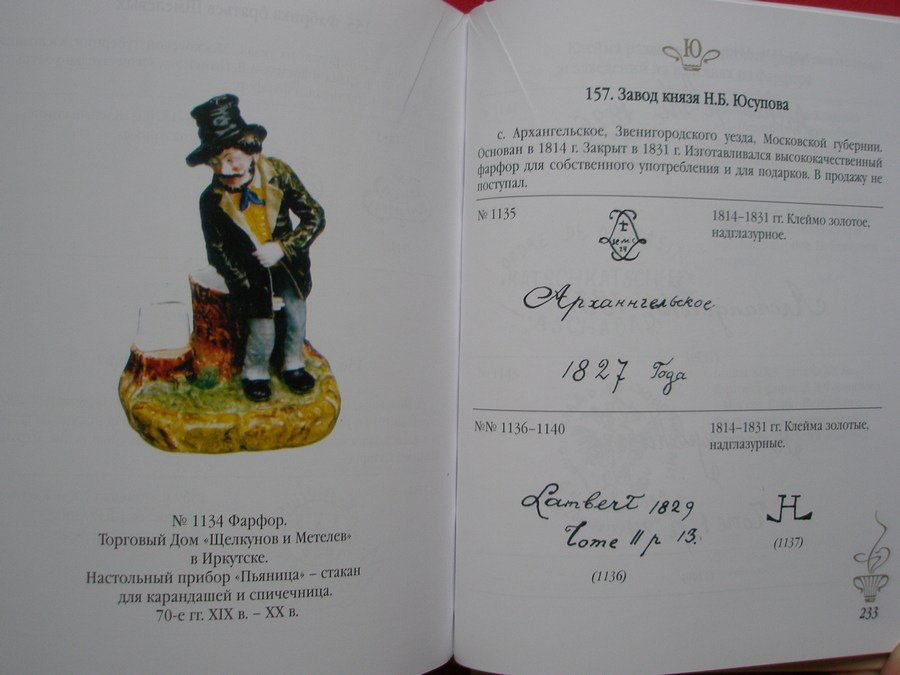 № 1134 Фарфор.
Торговый Дом «Щелкунов и Метелев»
в Иркутске.
Настольный прибор «Пьяница» – стакан
для карандашей и спичечница.
70-е гг. XIX в. – XX в.
Ю
157. Завод князя Н.Б. Юсупова
с. Архангельское, Звенигородского уезда, Московской губернии.
Основан в 1814 г. Закрыт в 1831 г. Изготавливался высококачественный
фарфор для собственного употребления и для подарков. В продажу не
поступал.
№ 1135
1814–1831 гг. Клеймо золотое,
надглазурное.
Архангельское
1827 Года
№№ 1136–1140
1814–1831 гг. Клейма золотые,
надглазурные.
Lambert 1829
Tome II p 13.
(1136)
Н
(1137)
233